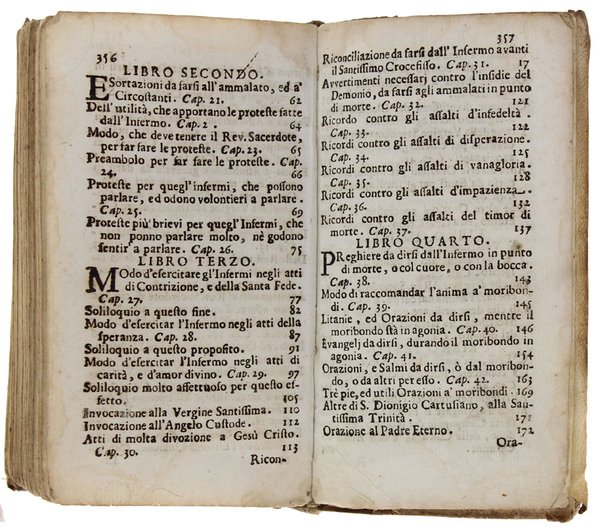 356
LIBRO SECONDO.
ESortazioni da farsi all'ammalato, ed a'
Circostanti. Cap. 21. 62
Dell'utilità, che apportano le proteste fatte
dall'Infermo. Cap. 2 . 64
Modo, che deve tenere il Rev. Sacerdote,
per far fare le proteste. Cap. 23. 65
Preambolo per far fare le proteste. Cap.
24. 66
Proteste per quegl'infermi, che possono
parlare, ed odono volontieri a parlare.
Cap. 25. 69
Proteste più brievi per quegl'Infermi, che
non ponno parlare molto, nè godono
sentir a parlare. Cap. 26. 75
LIBRO TERZO.
MOdo d'esercitare gl'Infermi negli atti
di Contrizione, e della Santa Fede.
Cap. 27. 77
Soliloquio a questo fine. 82
Modo d'esercitar l'Infermo negli atti della
speranza. Cap. 28. 87
Soliloquio a questo proposito. 91
Modo d'esercitar l'Infermo negli atti di
carità, e d'amor divino. Cap. 29. 97
Soliloquio molto affettuoso per questo ef-
fetto. 105
Invocazione alla Vergine Santissima. 110
Invocazione all'Angelo Custode. 112
Atti di molta divozione a Gesù Cristo.
Cap. 30. 113
Ricon-
357
Riconciliazione da farsi dall' Infermo avanti
il Santissimo Crocefisso. Cap. 31. 17
Avvertimenti necessarj contro l'insidie del
Demonio, da farsi agli ammalati in punto
di morte. Cap. 32. 121
Ricordo contro gli assalti d'infedeltà.
Cap. 33. 122
Ricordi contro gli assalti di disperazione.
Cap. 34. 125
Ricordi contro gli assalti di vanagloria.
Cap. 35. 128
Ricordi contro gli assalti d'impazienza.
Cap. 36. 132
Ricordi contro gli assalti del timor di
morte. Cap. 37. 137
LIBRO QUARTO.
PReghiere da dirsi dall'Infermo in punto
di morte, o col cuore, o con la bocca.
Cap. 38. 143
Modo di raccomandar l'anima a' moribon-
di. Cap. 39. 145
Litanie, ed Orazioni da dirsi, mentre il
moribondo stà in agonia. Cap. 40. 146
Evangelj da dirsi, durando il moribondo in
agonia. Cap. 41. 154
Orazioni, e Salmi da dirsi, ò dal moribon-
do, o da altri per esso. Cap. 42. 163
Trè pie, ed utili Orazioni a' moribondi. 169
Altre di S. Dionigio Cartusiano, alla San-
tissima Trinità. 171
Orazione al Padre Eterno. 172
Ora-